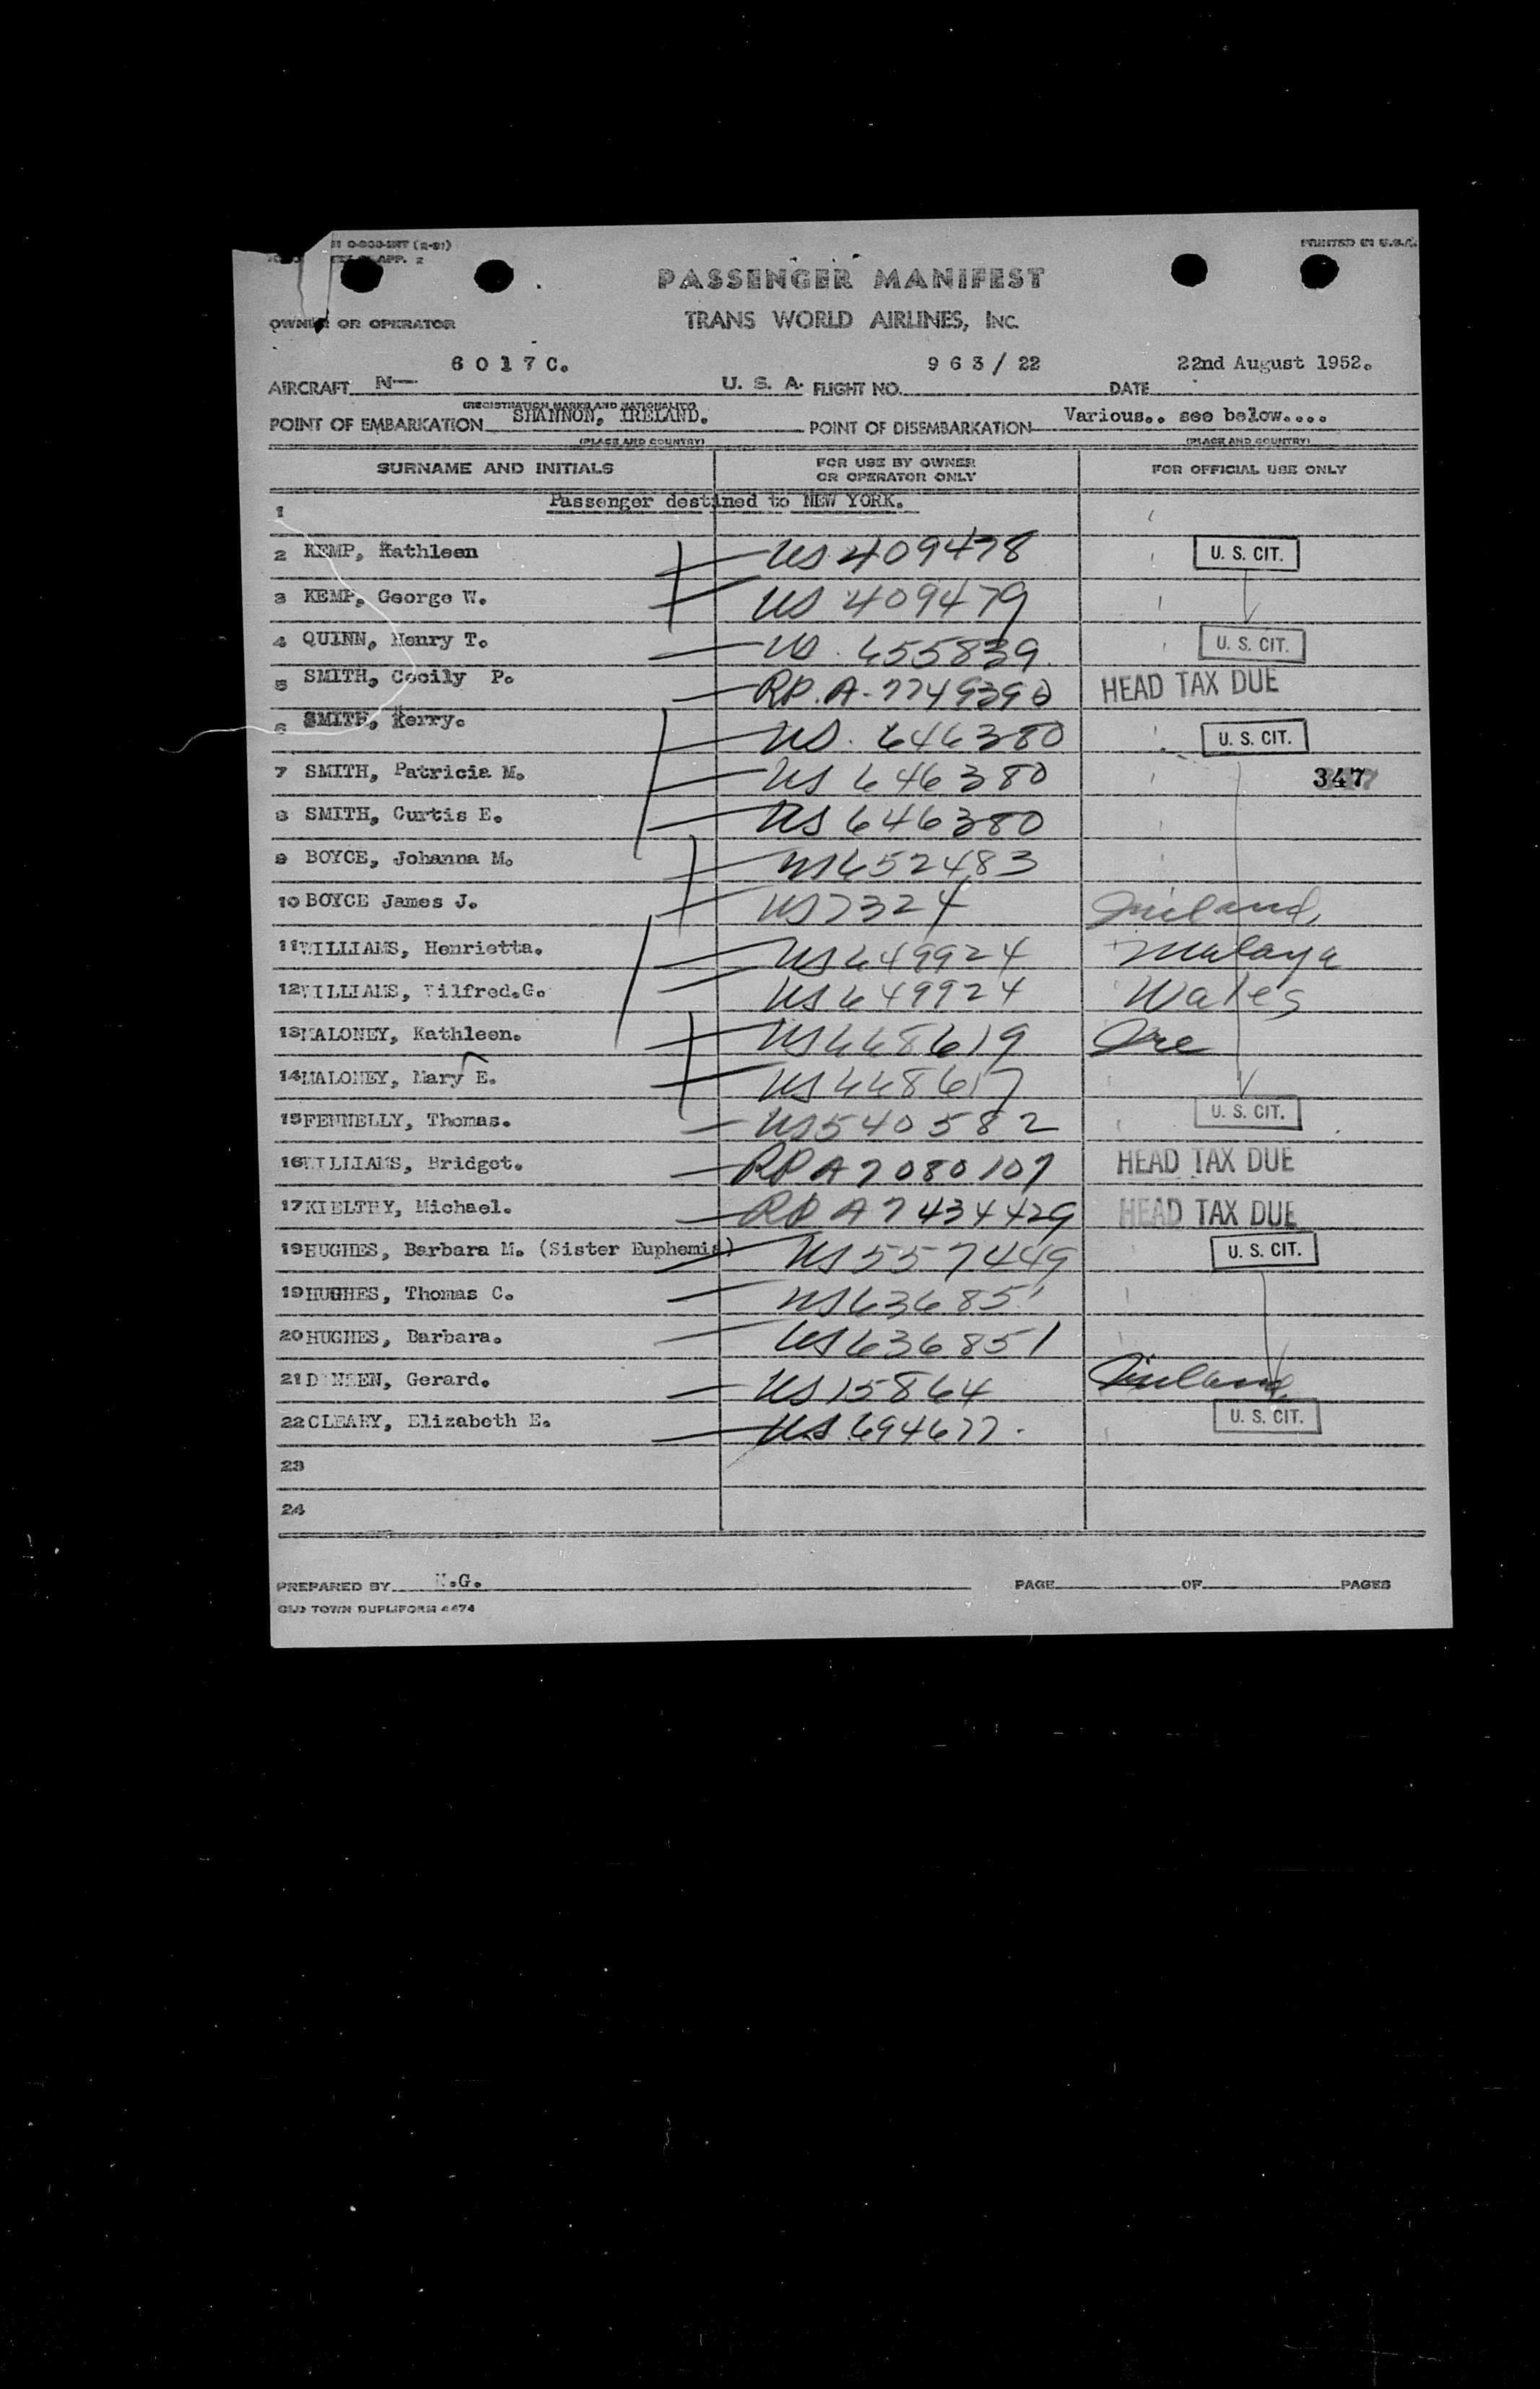 PRINTED IN U.S.A.
APP. 2
PASSENGER MANIFEST
OWNER OR OPERATOR TRANS WORLD AIRLINES, INC.
AIRCRAFT N— 6 0 1 7 C. U. S. A. FLIGHT NO. 9 6 3 / 22 DATE 22nd August 1952.
(REGISTRATION MARKS AND NATIONALITY)
POINT OF EMBARKATION SHANNON, IRELAND. POINT OF DISEMBARKATION Various.. see below....
(PLACE AND COUNTRY) (PLACE AND COUNTRY)
SURNAME AND INITIALS FOR USE BY OWNER OR OPERATOR ONLY FOR OFFICIAL USE ONLY
1 Passenger destined to NEW YORK.
2 KEMP, Kathleen US 409478 U. S. CIT.
3 KEMP, George W. US 409479
4 QUINN, Henry T. US. 655839. U. S. CIT.
5 SMITH, Cecily P. RP. A-7749390 HEAD TAX DUE
6 SMITH, Kerry. US. 646380 U. S. CIT.
7 SMITH, Patricia M. US 646380 347
8 SMITH, Curtis E. US 646380
9 BOYCE, Johanna M. US652483
10 BOYCE James J. US7324 Ireland
11 WILLIAMS, Henrietta. US649924 Malaya
12 WILLIAMS, Wilfred.G. US649924 Wales
13 MALONEY, Kathleen. US448619 Ire
14 MALONEY, Mary E. US448617
15 FENNELLY, Thomas. US540582 U. S. CIT.
16 WILLIAMS, Bridget. RP A7080107 HEAD TAX DUE
17 KIELTHY, Michael. RP A7434429 HEAD TAX DUE
18 HUGHES, Barbara M. (Sister Euphemia) US557449 U. S. CIT.
19 HUGHES, Thomas C. US636851
20 HUGHES, Barbara. US636851
21 Gerard. US15864 Ireland
22 CLEARY, Elizabeth E. US694677. U. S. CIT.
23
24
PREPARED BY .G. PAGE OF PAGES
OLD TOWN DUPLIFORM 4474